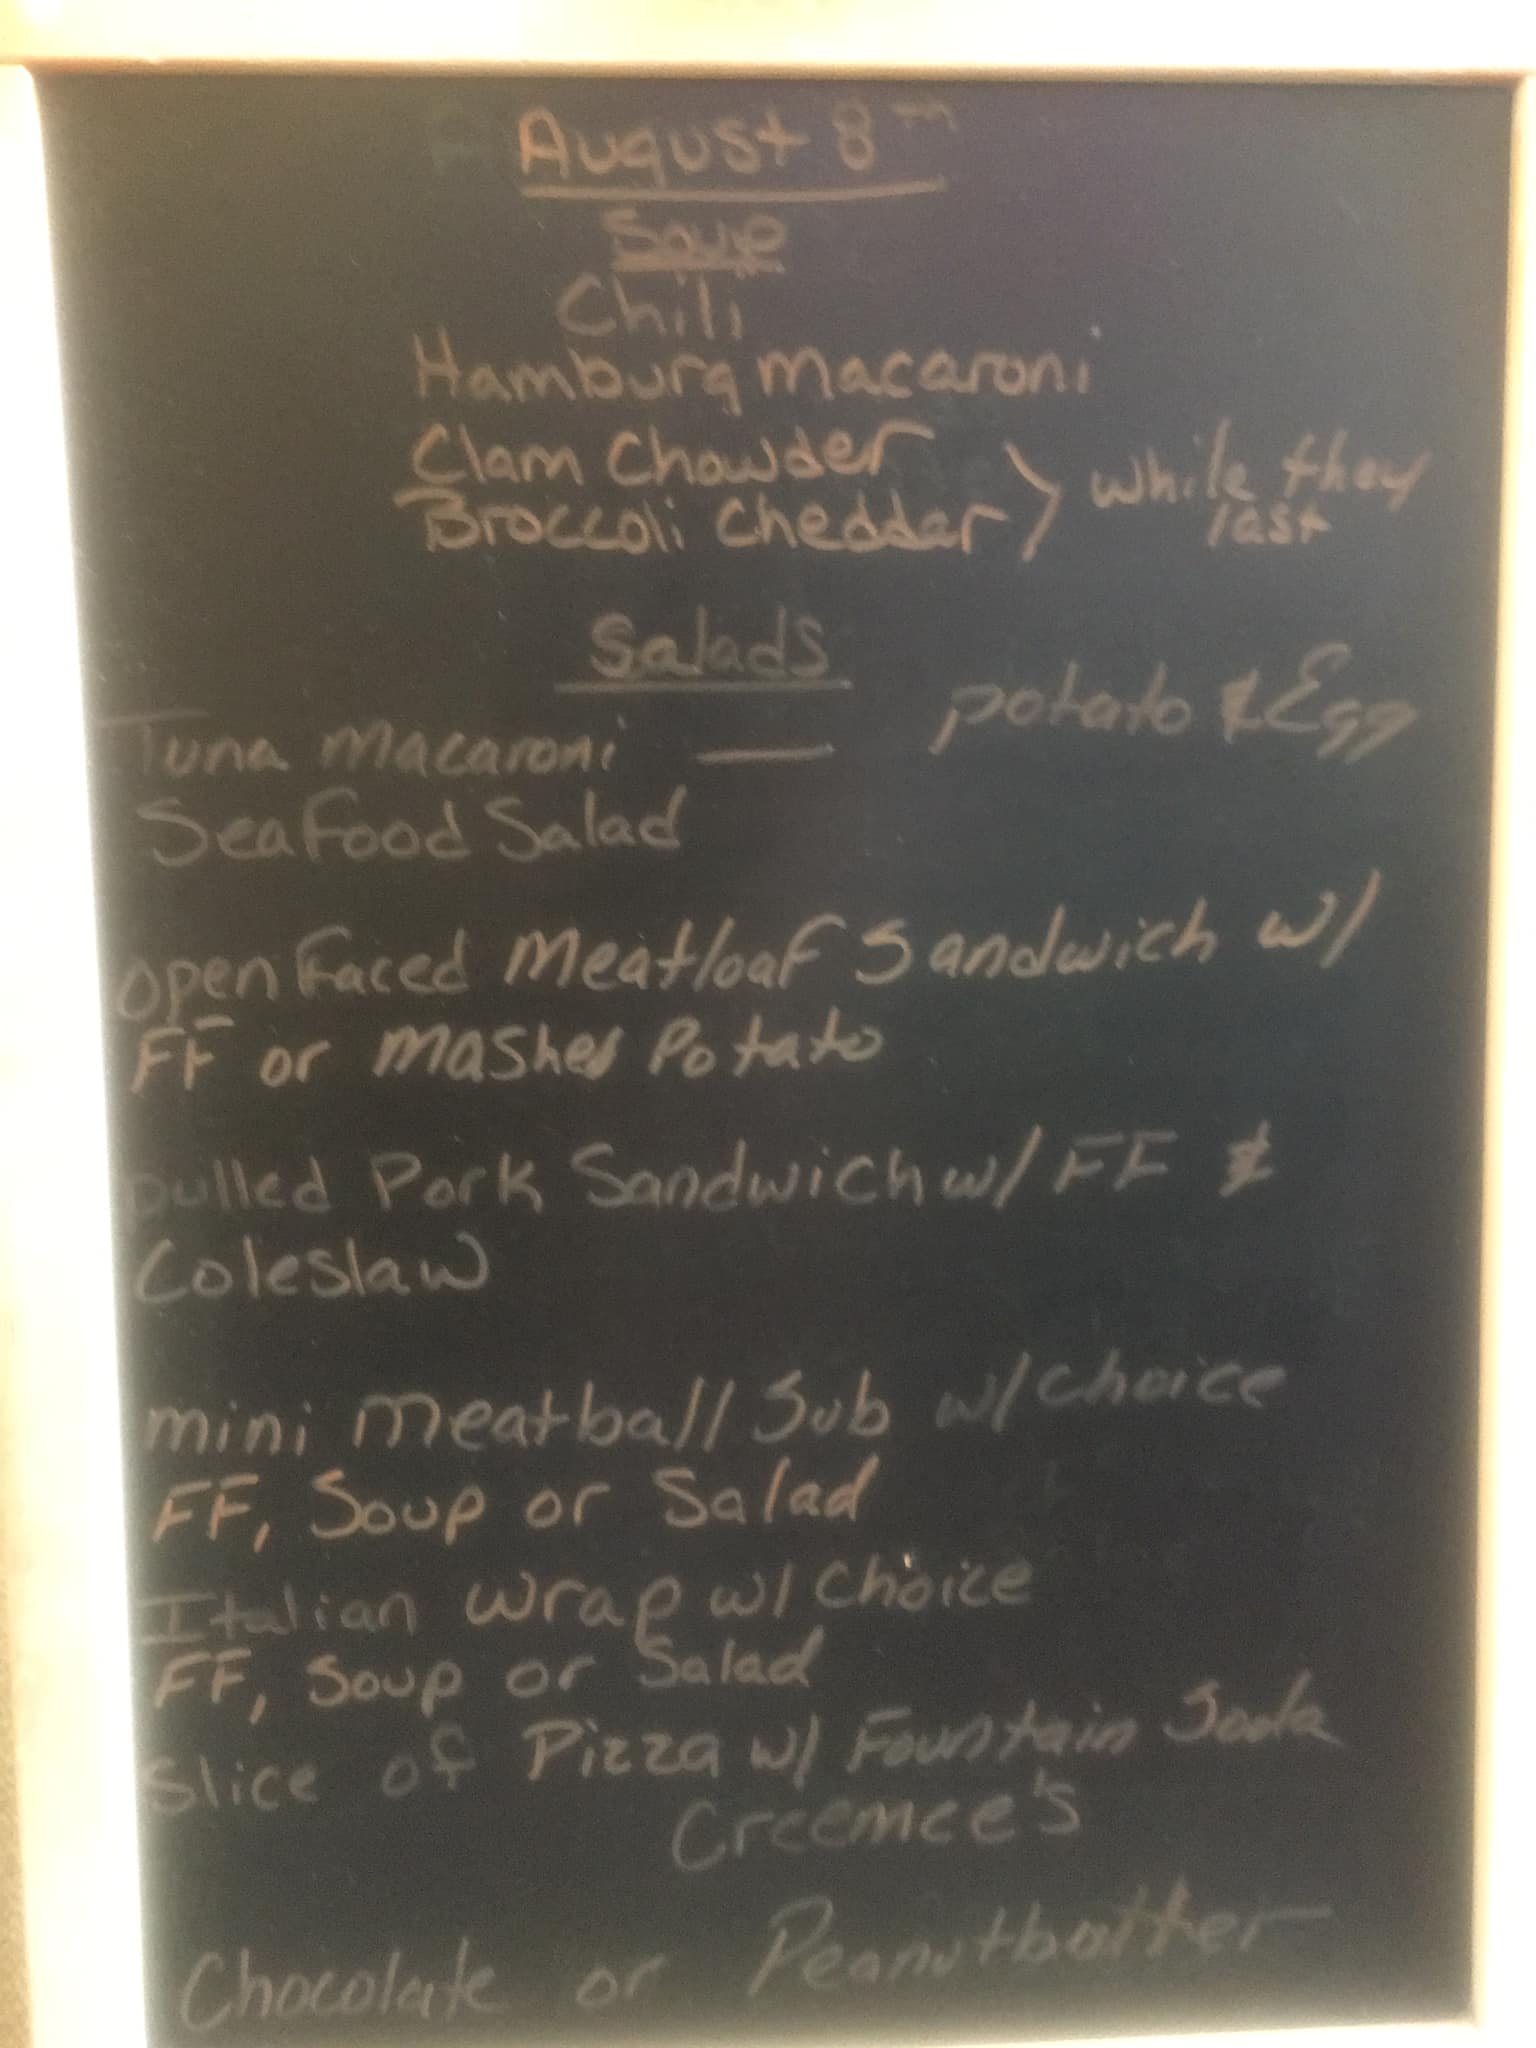 August 8th
Soup
Chili
Hamburg Macaroni
Clam Chowder
Broccoli Cheddar > while they last
Salads
Tuna Macaroni — potato & Egg
Seafood Salad
Open Faced Meatloaf Sandwich w/
FF or Mashed Potato
Pulled Pork Sandwich w/ FF &
Coleslaw
mini Meatball Sub w/ choice
FF, Soup or Salad
Italian Wrap w/ choice
FF, Soup or Salad
Slice of Pizza w/ Fountain Soda
Creemee's
Chocolate or Peanutbutter